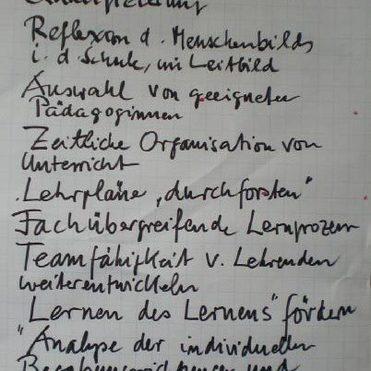 Reflexion d. Menschenbilds
i. d Schule, im Leitbild
Auswahl von geeigneten
Pädagoginnen
Zeitliche Organisation von
Unterricht
Lehrpläne "durchforsten"
Fachübergreifende Lernprozesse
Teamfähigkeit v. Lehrenden
weiterentwickeln
"Lernen des Lernens" fördern
"Analyse der individuellen
und